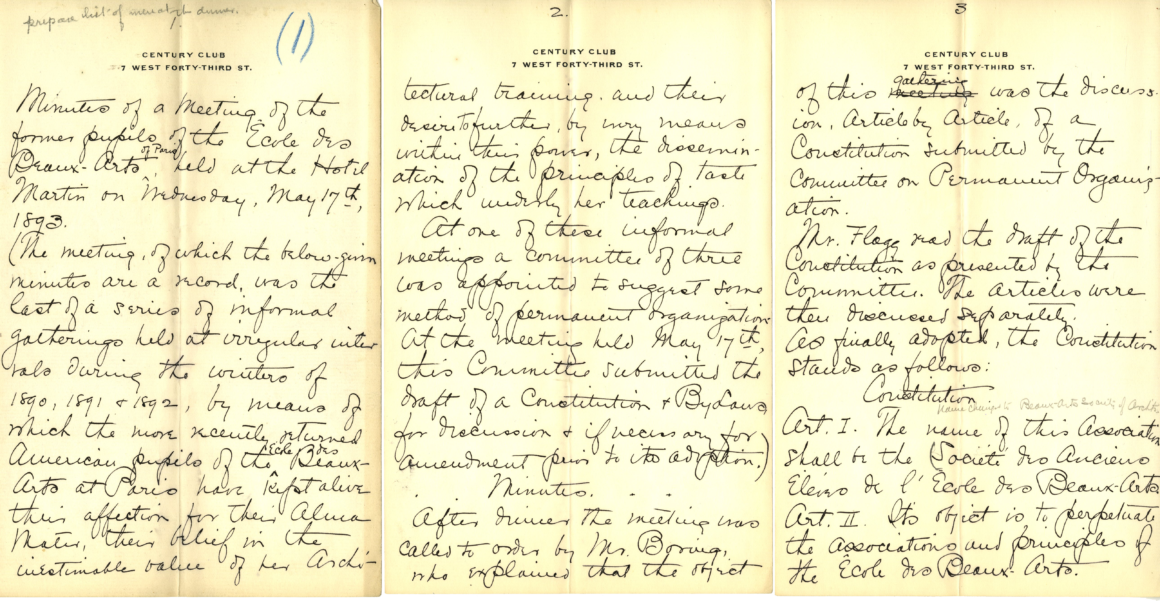 prepare list of men at dinner.
1.
(1)
CENTURY CLUB
7 WEST FORTY-THIRD ST.
Minutes of a Meeting of the
former pupils of the Ecole des
Beaux-Arts of Paris, held at the Hotel
Martin on Wednesday, May 17th,
1893.
(The meeting, of which the below-given
minutes are a record, was the
last of a series of informal
gatherings held at irregular inter
vals during the winters of
1890, 1891 & 1892, by means of
which the more recently returned
American pupils of the Ecole des Beaux-
Arts at Paris have kept alive
their affection for their Alma
Mater, their belief in the
inestimable value of her Archi-
2.
CENTURY CLUB
7 WEST FORTY-THIRD ST.
tectural training, and their
desire to further, by every means
within their power, the dissemin-
ation of the principles of taste
which underly her teachings.
At one of these informal
meetings a committee of three
was appointed to suggest some
method of permanent organization.
At the meeting held May 17th,
this Committee submitted the
draft of a Constitution & By Laws
for discussion & if necessary for
amendment prior to its adoption.)
Minutes.
After dinner the meeting was
called to order by Mr. Boring,
who explained that the object
3
CENTURY CLUB
7 WEST FORTY-THIRD ST.
gathering
of this meeting was the discuss-
ion, Article by Article, of a
Constitution submitted by the
Committee on Permanent Organiz-
ation.
Mr. Flagg read the draft of the
Constitution as presented by the
Committee. The articles were
then discussed separately.
As finally adopted, the Constitution
stands as follows:
Constitution
name changed to Beaux-Arts Society of Archts
Art. I. The name of this Association
shall be the (Société des Anciens
Eleves de l'Ecole des Beaux-Arts
Art. II. Its object is to perpetuate
the associations and principles of
the Ecole des Beaux-Arts.